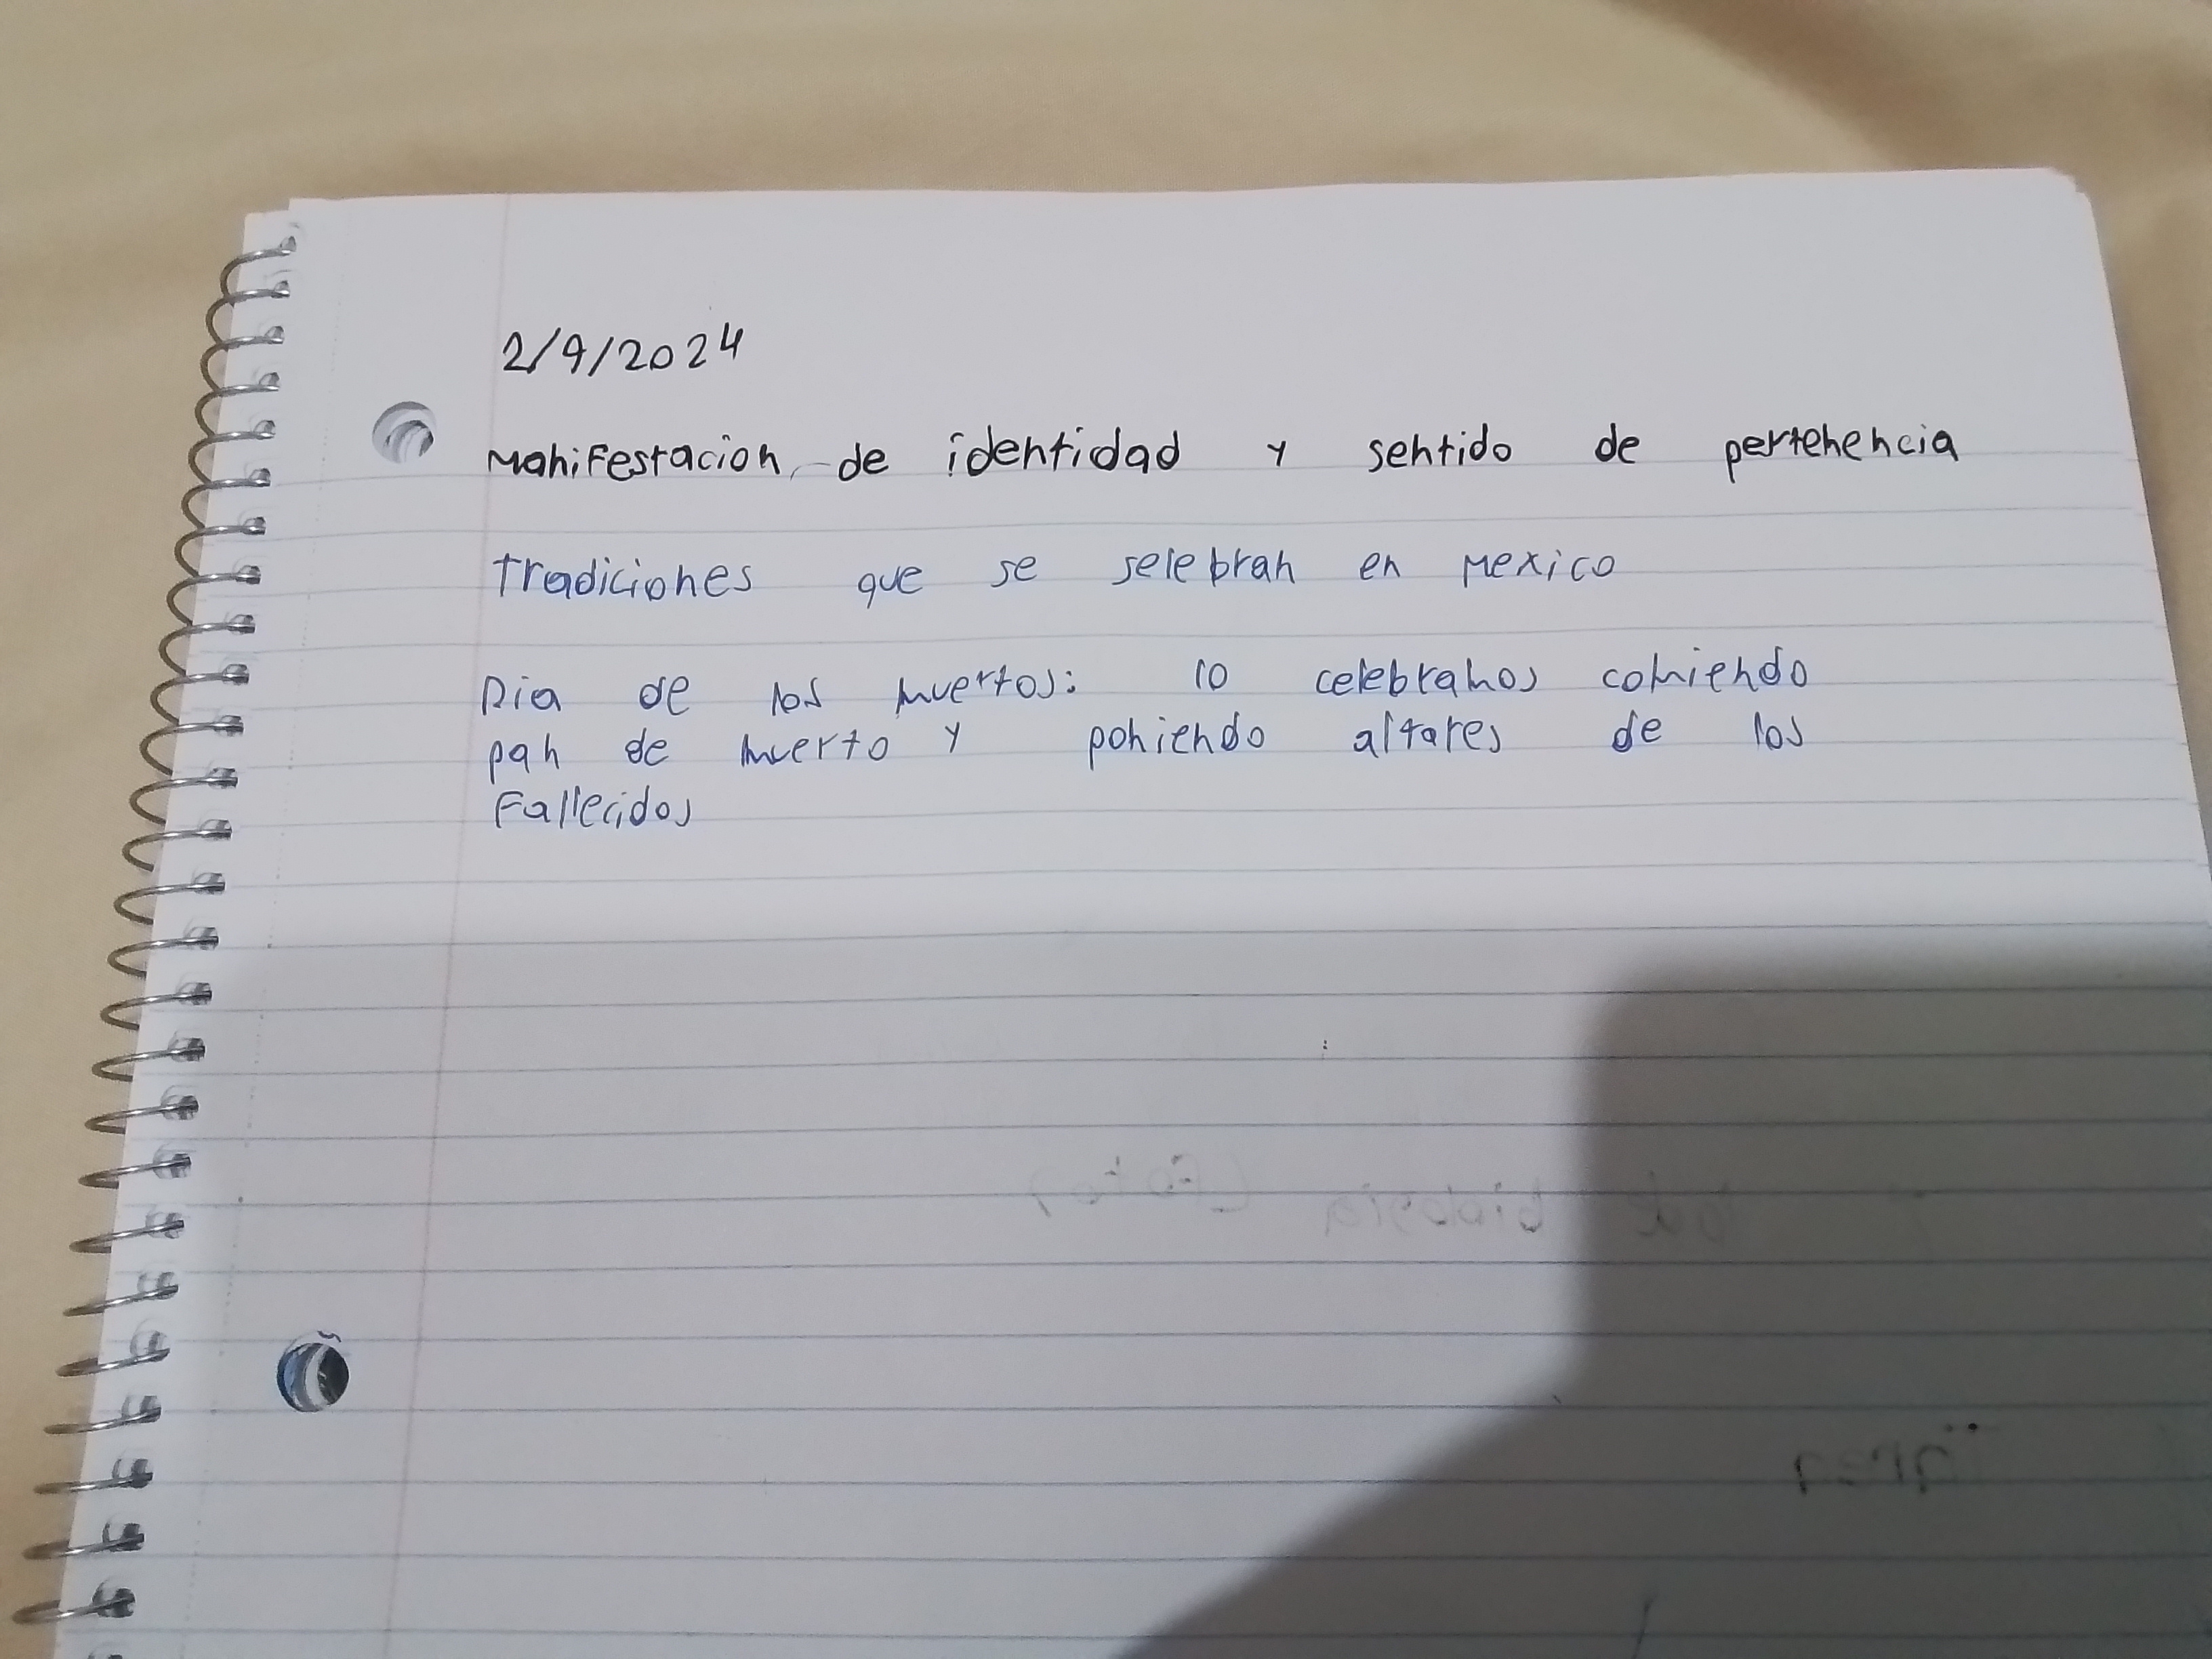 2/9/2024
Manifestacion de identidad y sentido de pertenencia
Tradiciones que se selebran en Mexico
Dia de los muertos: lo celebramos comiendo
pan de muerto y poniendo altares de los
Fallecidos